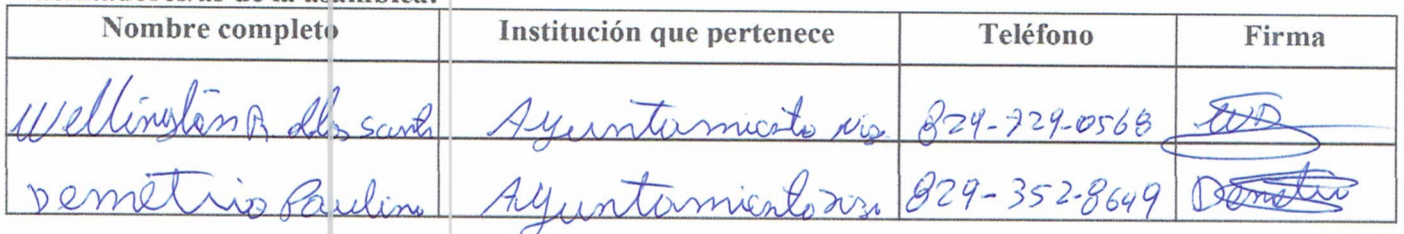 de la asamblea:
Nombre completo Institución que pertenece Teléfono Firma
Wellington A de los santos Ayuntamiento 829-729-0568 WD
Demetrio Paulino Ayuntamiento 829-352-8649 Demetrio